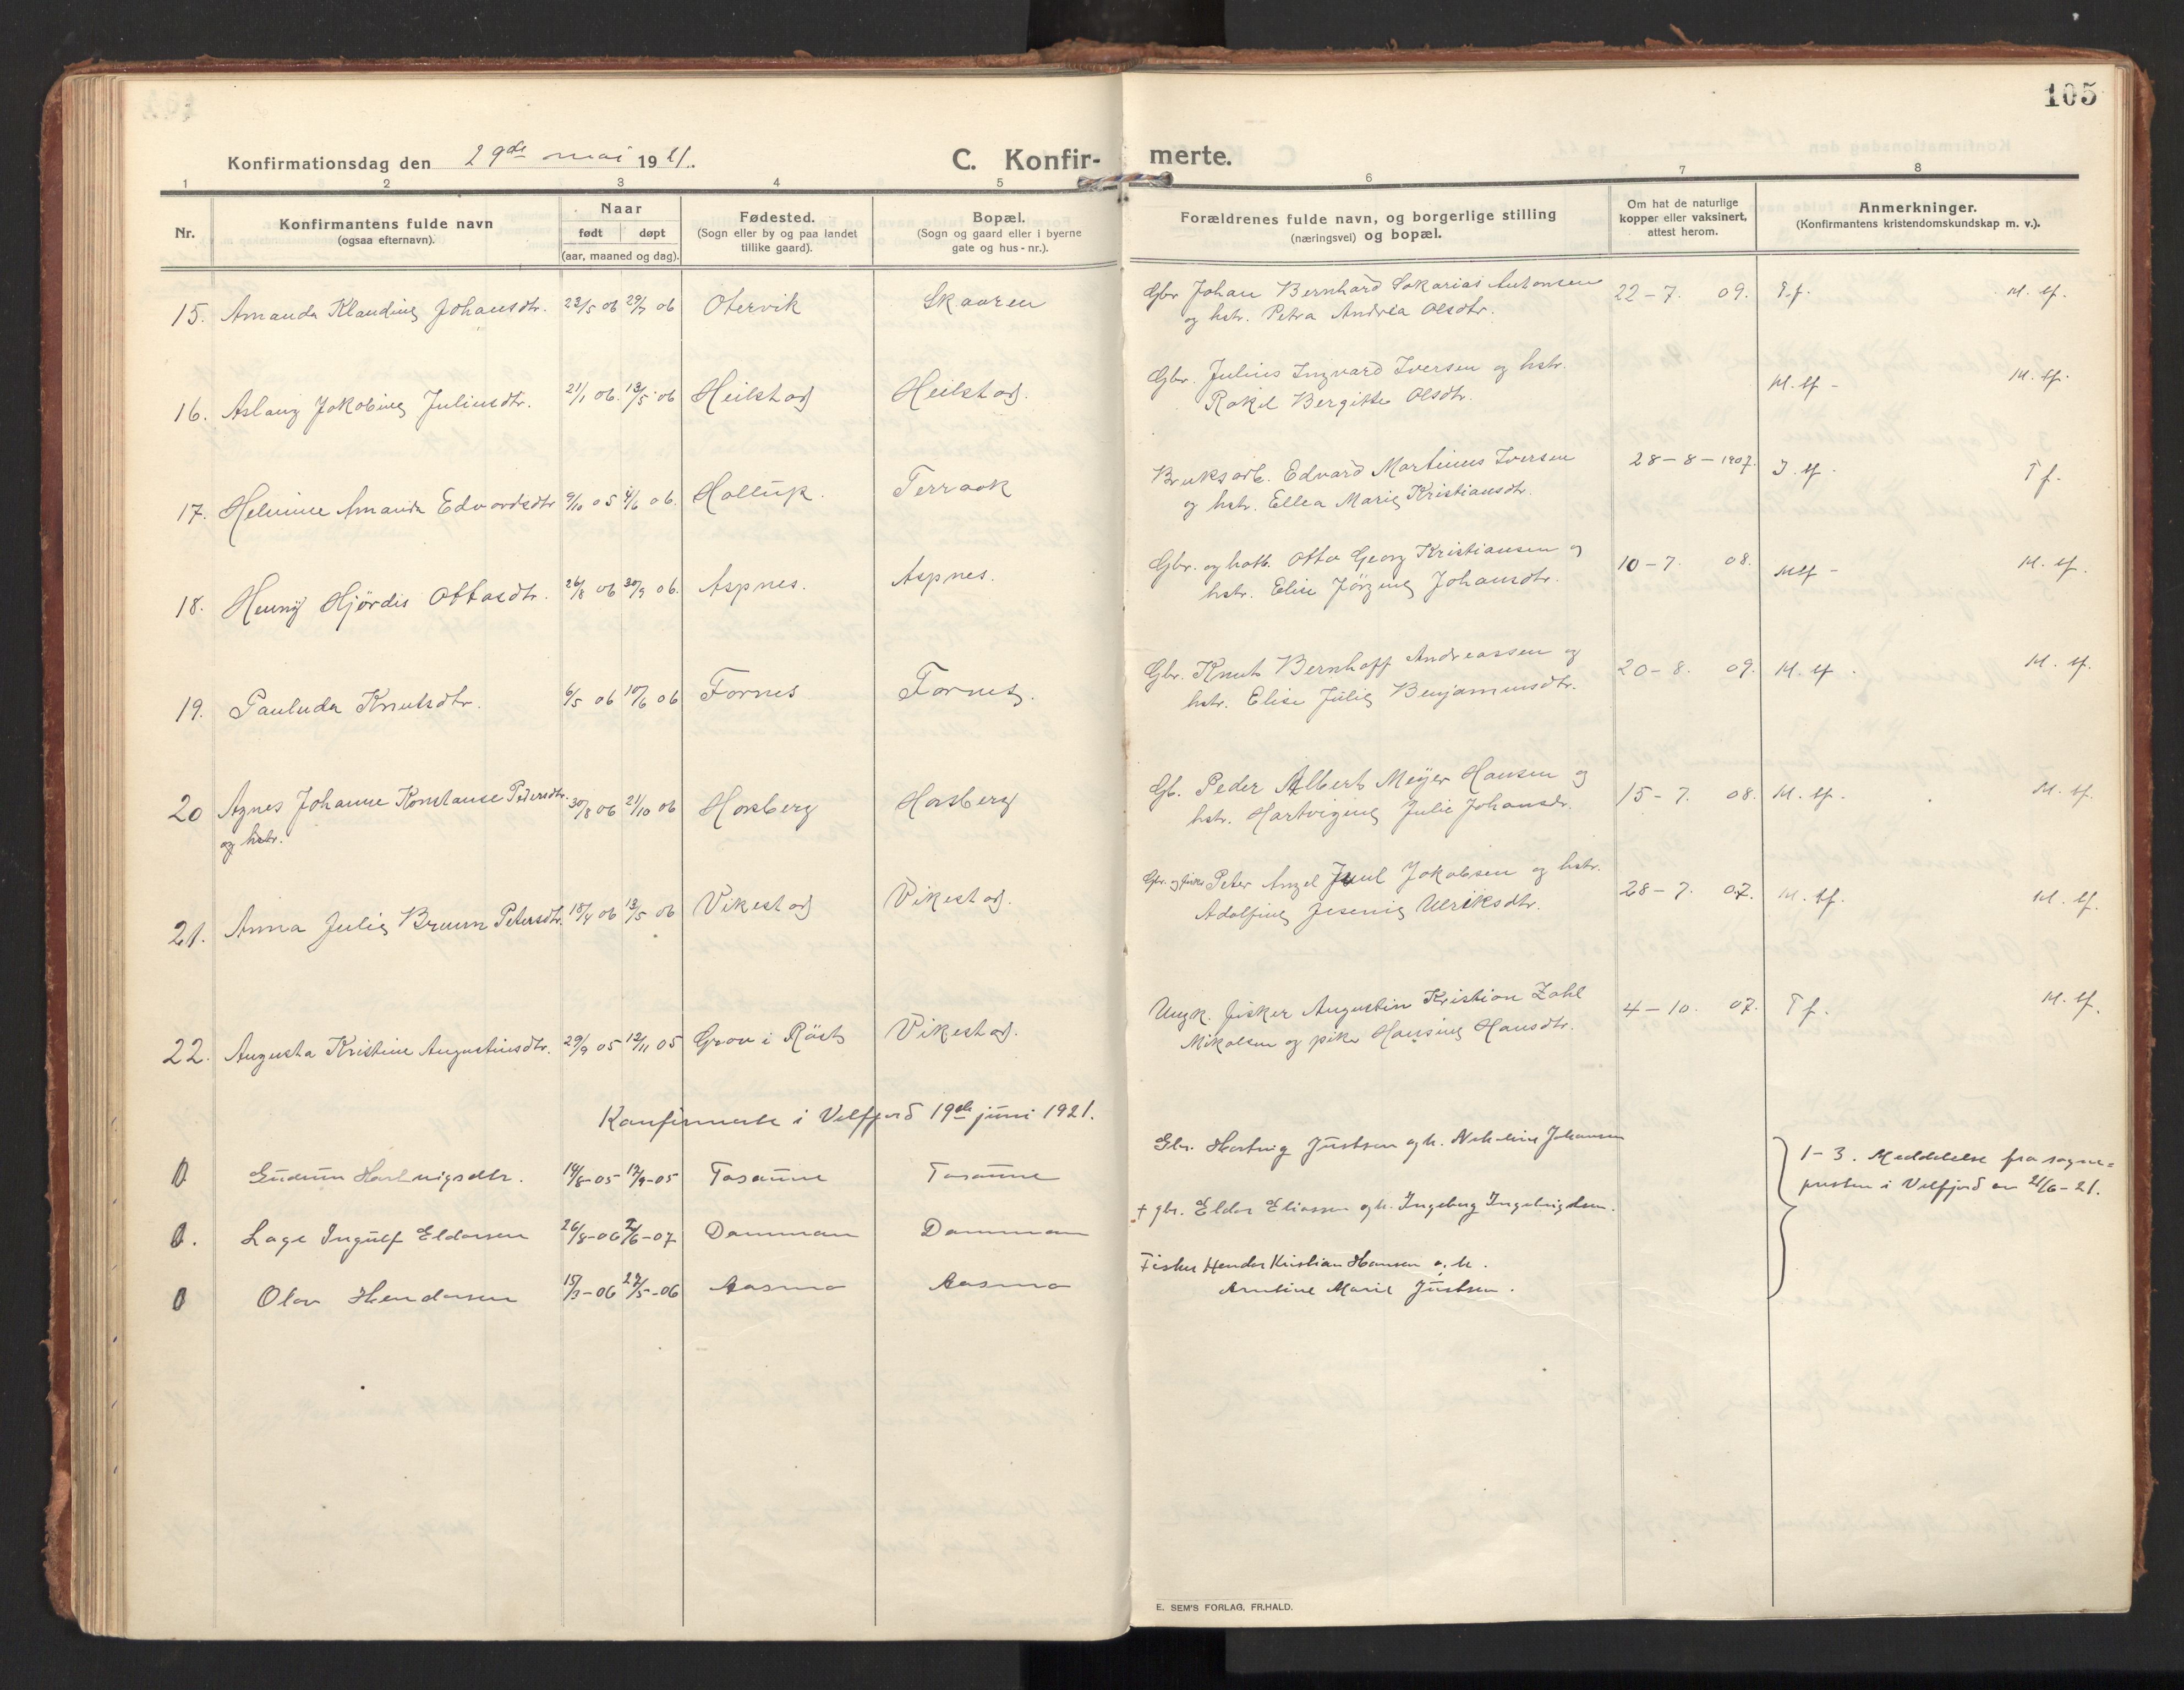 105
Konfirmationsdag den 29de mai 1921.
C. Konfir- merte.
1 2 3 4 5 6 7 8
Nr.
Konfirmantens fulde navn
(ogsaa efternavn).
Naar
født døpt
(aar, maaned og dag).
Fødested.
(Sogn eller by og paa landet
tillike gaard).
Bopæl.
(Sogn og gaard eller i byerne
gate og hus-nr.).
Forældrenes fulde navn, og borgerlige stilling
(næringsvei) og bopæl.
Om hat de naturlige
kopper eller vaksinert,
attest herom.
Anmerkninger.
(Konfirmantens kristendomskundskap m. v.).
15. Amanda Klaudine Johansdtr. 23/5 06 29/7 06 Otervik Skauren Gbr. Johan Bernhard Sakarias Antonsen 22-7. 09. T.f. M. tf.
og hstr. Petra Andrea Olsdtr.
16. Aslaug Jakobine Juliusdtr. 21/1 06. 13/5 06 Heilstad Heilstad. Gbr. Julius Ingvard Iversen og hstr. M. tf - M. tf.
Rakel Bergitte Olsdtr.
17. Helmine Amanda Edvardsdtr 9/10 05 4/6 06. Hallup. Terraak Bruksarb. Edvard Martinus Iversen 28-8-1907. T. tf. T f.
og hstr. Ellea Marie Kristiansdtr.
18. Henny Hjördis Ottasdtr. 26/8 06 30/9 06. Aspnes. Aspnes. Gbr. og hatb. Otto Georg Kristiansen og 10-7. 08. Mtf - M. tf.
hstr. Elise Jörgine Johansdtr.
19. Pauluda Knutsdtr. 6/5 06 10/6 06 Fornes Fornes. Gbr. Knut Bernhoff Andreassen og 20-8. 09. M. tf. M. tf.
hstr. Elise Julie Benjaminsdtr.
20 Agnes Johanne Konstanse Pedersdtr. 30/8 06 21/10 06 Horsberg Horsberg Gb. Peder Albert Meyer Hansen og 15-7. 08. M. tf. M. tf.
og hstr. hstr. Hartvigine Julie Johansdr.
21. Anna Julie Bruun Petersdtr. 18/4 06 13/5 06 Vikestad Vikestad. Gbr. og fisker Peter Angel Juul Jakobsen og hstr. 28-7. 07. M. tf. M. tf.
Adolfine Jesenie Ulriksdtr.
22. Augusta Kristine Augustinsdtr. 29/9 05 12/11 05 Grav i Röst Vikestad. Ungk. fisker Augustin Kristian Zahl 4-10. 07. T f. M. tf.
Mikalsen og pike Hansine Hansdtr.
Konfirmerte i Velfjord 19de juni 1921.
Gudrun Hartvigsdtr. 14/8-05 17/9-05 Tosaune Tosaune Gbr. Hartvig Justsen og h. Nikoline Johansen 1-3. Meddelelse fra sogne=
presten i Velfjord av 21/6-21.
Lage Ingulf Eldarsen 26/8-06 2/6-07 Damman Damman + gbr. Eldar Eliassen og h. Ingeborg Ingebrigtsen.
Olav Hendarsen 15/3-06 27/5-06 Aasmo Aasmo Fisker Hender Kristian Hansen o. h.
Arntine Marie Justsen.
E. SEM'S FORLAG, FR.HALD.